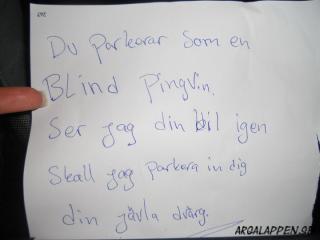 Du parkerar som en
Blind Pingvin.
Ser jag din bil igen
Skall jag parkera in dig
din jävla dvärg.
ARGALAPPEN.SE